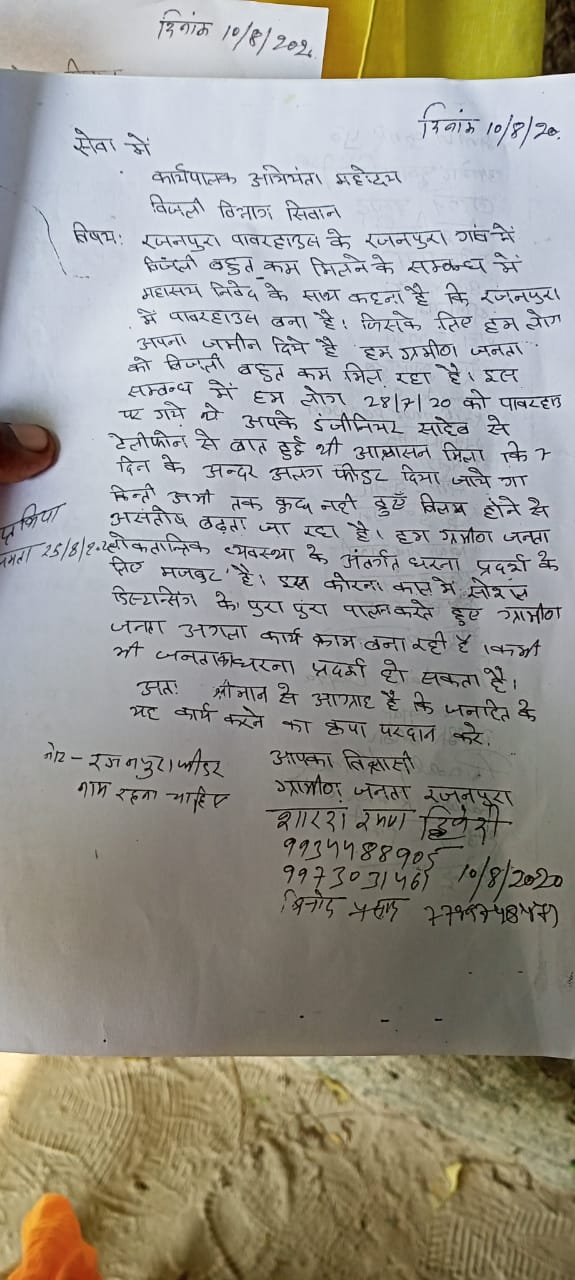 दिनांक 10/8/202
दिनांक 10/8/20
सेवा में
कार्यपालक अभियंता महोदय
बिजली विभाग सिवान
विषय: रजनपुरा पावरहाउस के रजनपुरा गांव में
बिजली बहुत कम मिलने के सम्बन्ध में
महासय निवेद के साथ कहना है कि रजनपुरा
में पावरहाउस बना है। जिसके लिए हम लोग
अपना जमीन दिये है हम ग्रामीण जनता
को बिजली बहुत कम मिल रहा है। इस
सम्बन्ध में हम लोग 28/7/20 को पावरहाउ
पर गये थे आपके इंजीनियर साहेब से
टेलीफोन से बात हुई थी आश्वासन मिला कि 7
दिन के अन्दर अलग फीडर दिया जाये गा
किन्तु अभी तक कुछ नही हुएँ विलम्ब होने से
असंतोष बढ़ता जा रहा है। हम ग्रामीण जनता
लोकतान्त्रिक व्यवस्था के अंतर्गत धरना प्रदर्श के
लिए मजबुर है। इस कोरना काल में सोशल
डिस्टान्सिंग के पुरा पुरा पालन करते हुए ग्रामीण
जनता अगला कार्य क्राम बना रही है। कभी
भी जनता का धरना प्रदर्श हो सकता है।
अतः श्रीमान से आग्राह है कि जनहित के
यह कार्य करने का कृपा परदान करे।
किया
25/8/2
नोट - रजनपुरा फीडर
नाम रहना चाहिए
आपका विश्वासी
ग्रामीण जनता रजनपुरा
शारदा रमण द्विवेदी
9934488905
9973031461 10/8/2020
बिनोद प्रसाद